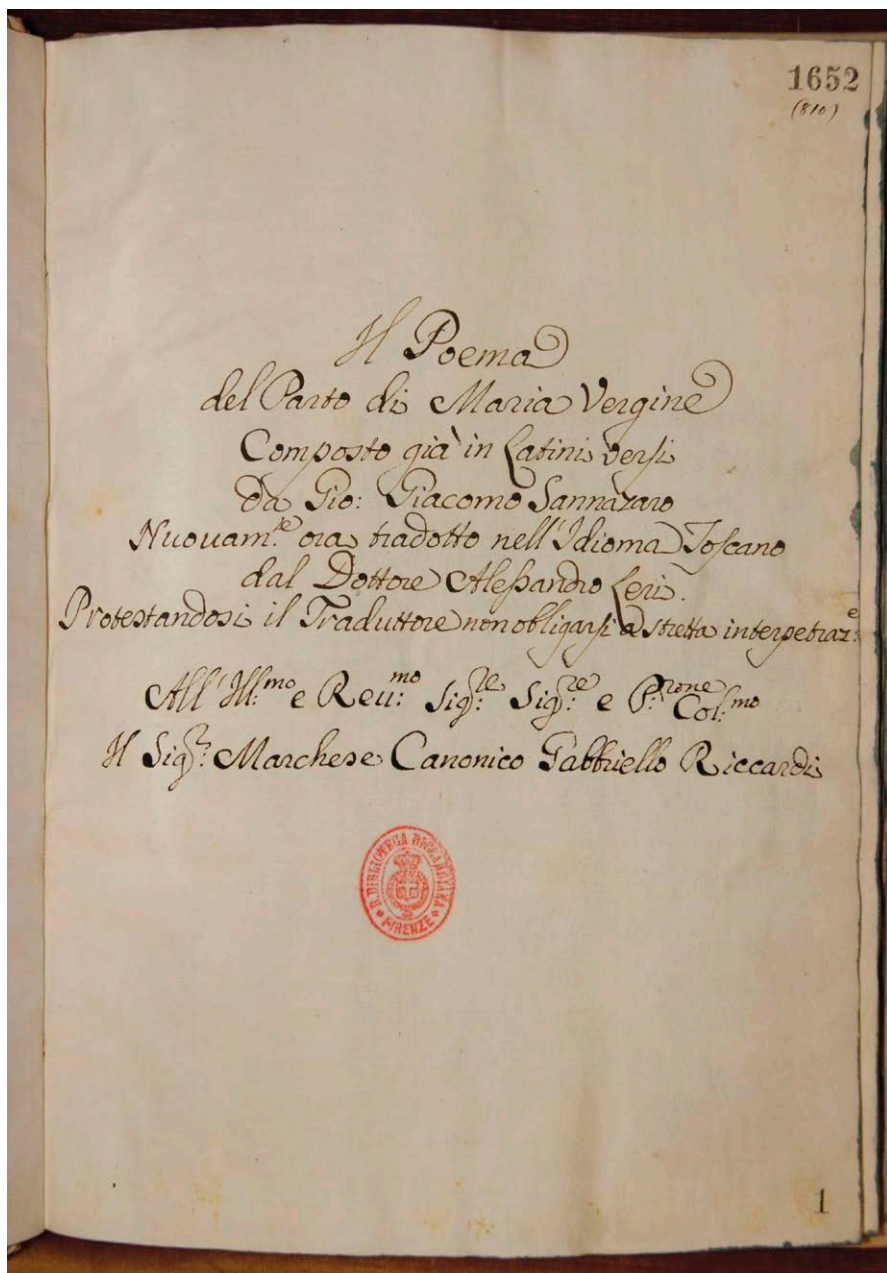 1652
(810)
Il Poema
del Parto di Maria Vergine
Composto già in Latini versi
Da Gio: Giacomo Sannazaro
Nuouam.te ora tradotto nell'Idioma Toscano
dal Dottore Alessandro Leri.
Protestandosi il Traduttore non obligarsi a stretta interpetraz:e
All'Ill:mo e Reu:mo Sig:re Sig:re e P:rone Col:mo
Il Sig:r Marchese Canonico Gabbriello Riccardi
R. BIBLIOTECA RICCARDIANA
FIRENZE
1